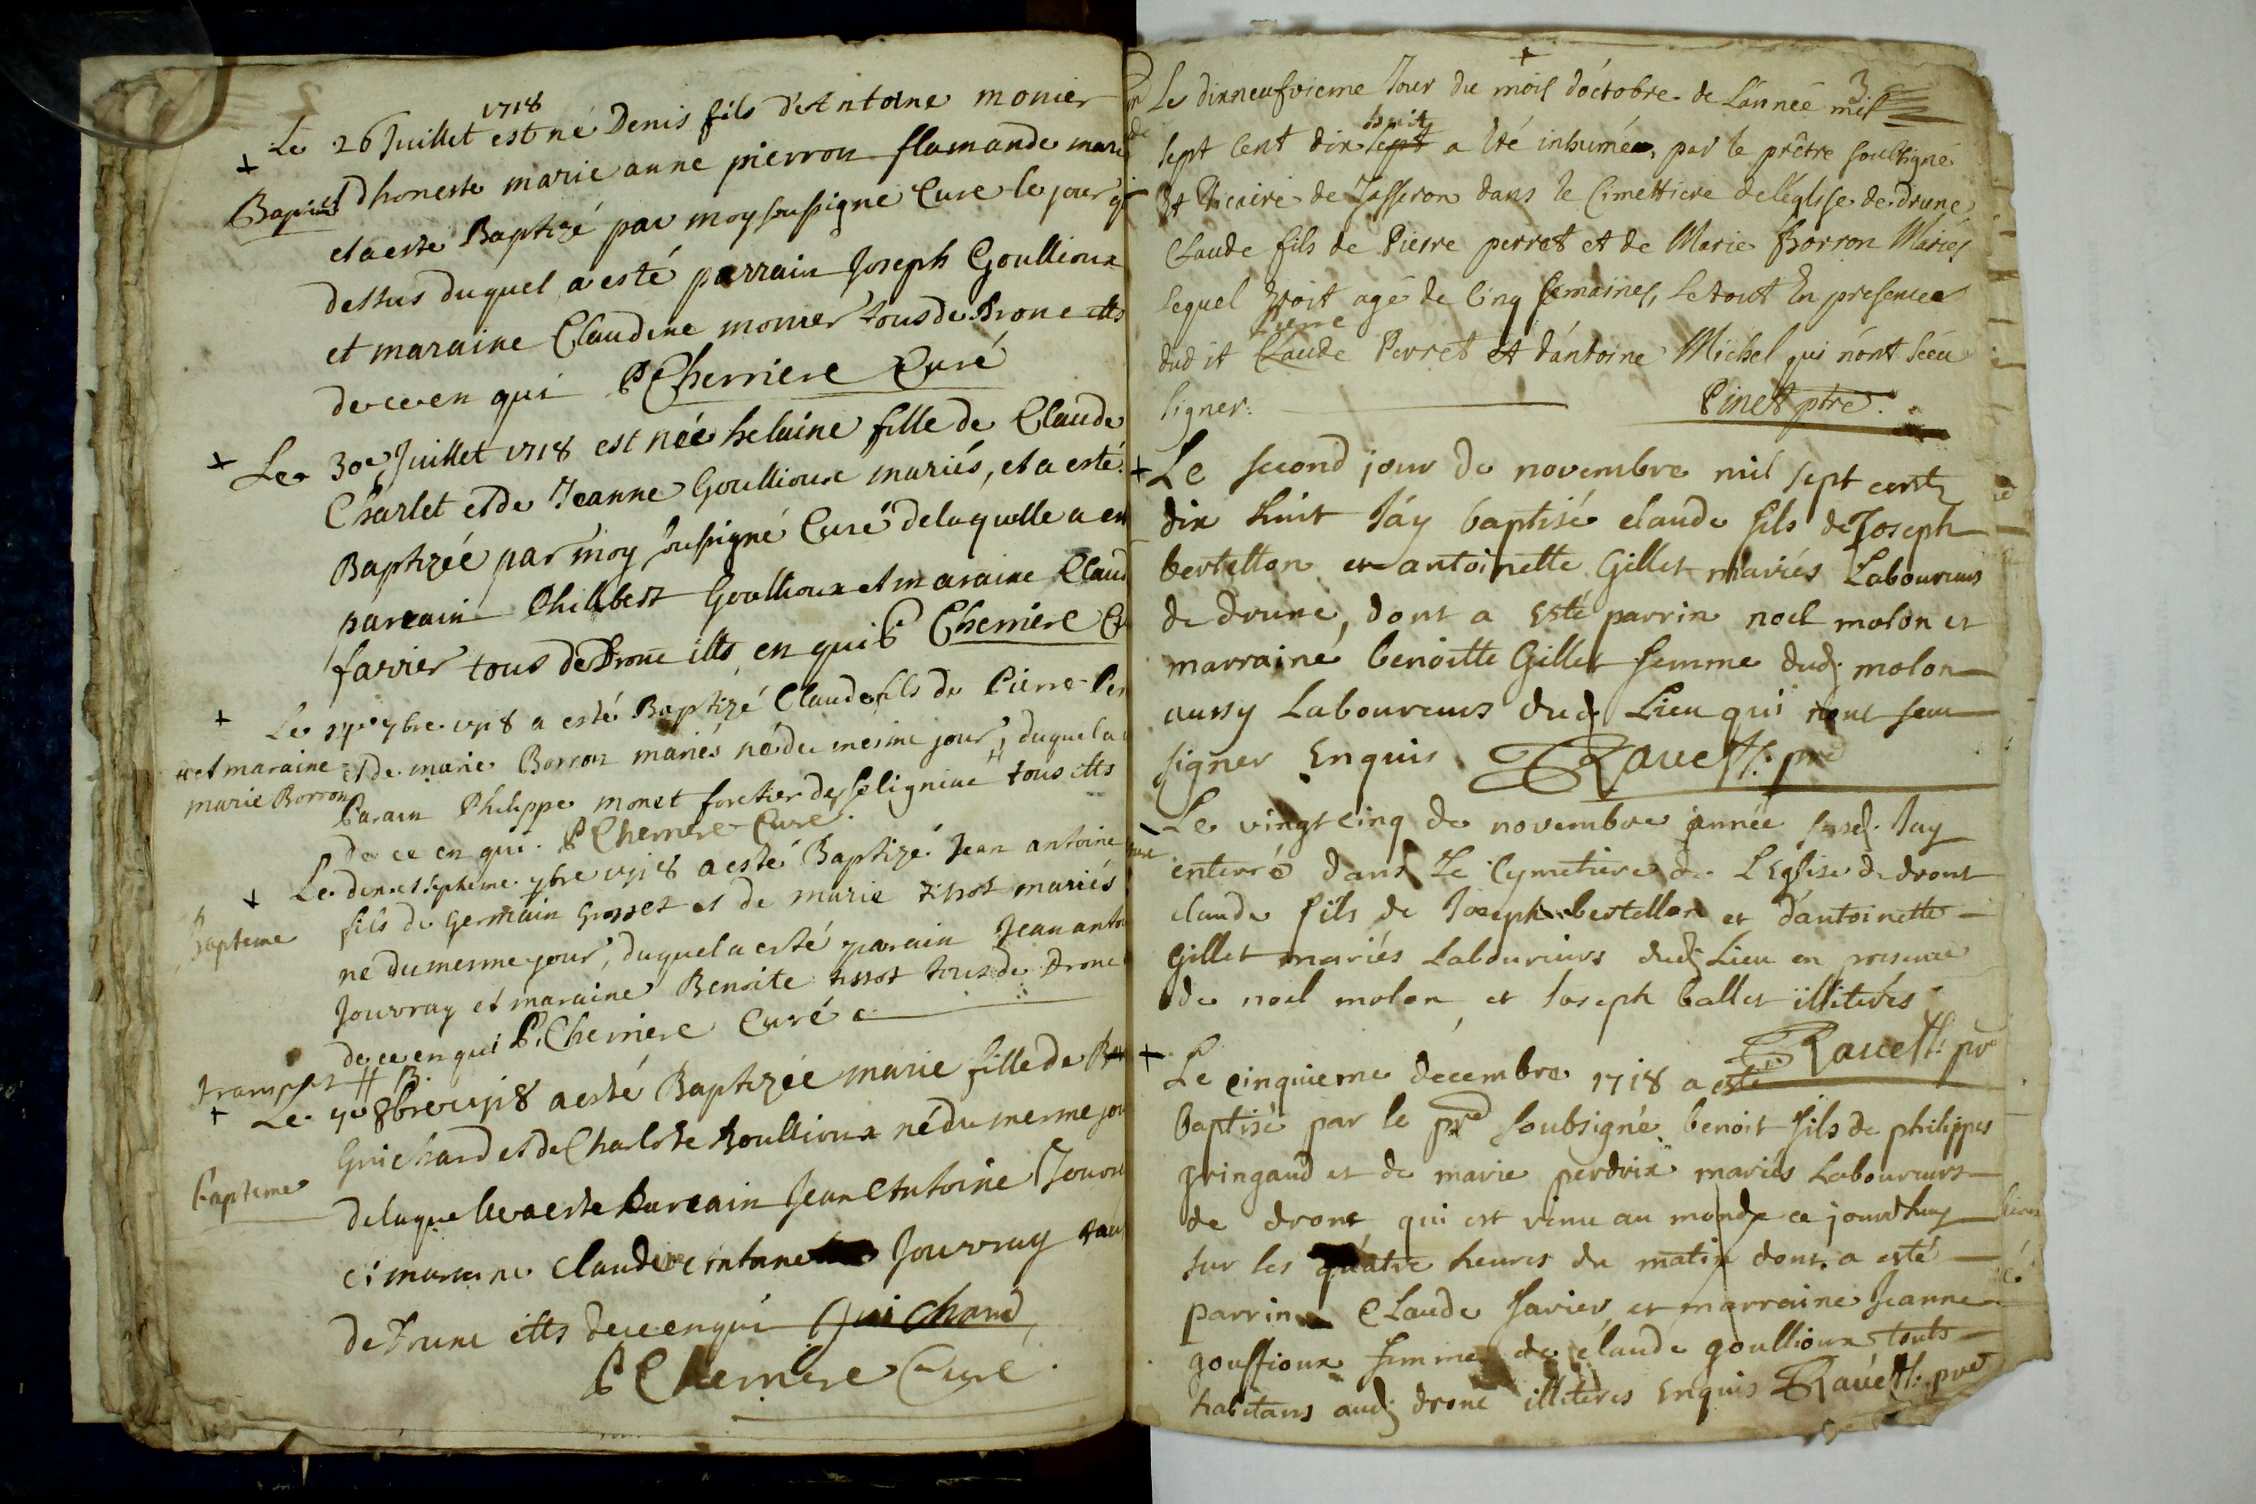 1718
Le 26 Juillet est né Denis fils d'Antoine monier
Baptême d'honeste marie anne pierron flamande mari
et a este Baptizé par moy soussigné Curé le jour
dessus duquel a esté parrain Joseph Goullioux
et maraine Claudine monier tous de Drone itts
de ce en qui P Cherriere Curé
Le 30e Juillet 1718 est née helaine fille de Claude
Charlet et de Jeanne Goullioux mariés, et a esté
Baptizée par moy soussigné Curé de laquelle a e
parrain Philibert Goullioux et maraine Claud
favier tous de Drone itts en qui P Cherriere C
Le 7bre 1718 a esté Baptizé Claude fils de Pierre Per
et de marie Borron mariés né du mesme jour, duquel a
et maraine
marie Borron
Parain Philippe monet foretier de Seligniac tous itts
de ce en qui. P Cherriere Curé.
Le dix et septieme 7bre 1718 a esté Baptizé Jean antoine
Bapteme
fils de Germain Grosset et de marie tissot mariés
né du mesme jour, duquel a esté parain Jean anto
Jouvray et maraine Benoite tissot tous de Drone
de ce en qui P. Cherriere Curé
Le 8bre 1718 a esté Baptizée marie fille de
Guichard et de Charlote Goullioux né du mesme jou
Bapteme
de laquelle a este Parrain Jean Antoine Jouvr
et maraine Claudine Jouvray
de Drone itts de ce en qui Guichard
P Cherriere Curé.
3
Le dixneufvieme Jour du mois d'octobre de L'année mil
huit
sept cent dix sept a été inhumé par le prêtre soussigné
et Vicaire de Jasseron dans le Cimettiere de l'églisse de drune
Claude fils de Pierre perret et de Marie Borron Mariés
lequel étoit agé de cinq semaines, le tout En presence
Pierre
dudit Claude Perret et d'antoine Michel qui n'ont sceu
signer.
Pinet ptre.
Le second jour de novembre mil sept cents
dix huit J'ay baptisé claude fils de Joseph
bertellon et antoinette Gillet mariés Laboureurs
de drune, dont a Esté parrin noel molon et
marraine benoitte Gillet femme dud. molon
aussy Laboureurs dud. Lieu qui n'ont sceu
signer Enquis Ravet pre
Le vingt cinq de novembre année susd. Jay
enterré dans Le Cymetiere de L'Eglise de dront
claude fils de Joseph bertellon et d'antoinette
Gillet mariés Laboureurs dud. Lieu en presence
de noel molon et Joseph ballet illiterés
Ravet pre
Le cinquieme decembre 1718 a esté
baptisé par le pre soubsigné benoit fils de philippes
gringaud et de marie perdrix mariés Laboureurs
de drone qui est venu au monde ce jourdhuy
sur les quatre heures du matin dont a esté
parrin Claude favier et marraine Jeanne
gouffioux femme de claude goullioux touts
habitans aud. drone illiterés Enquis Ravet pre